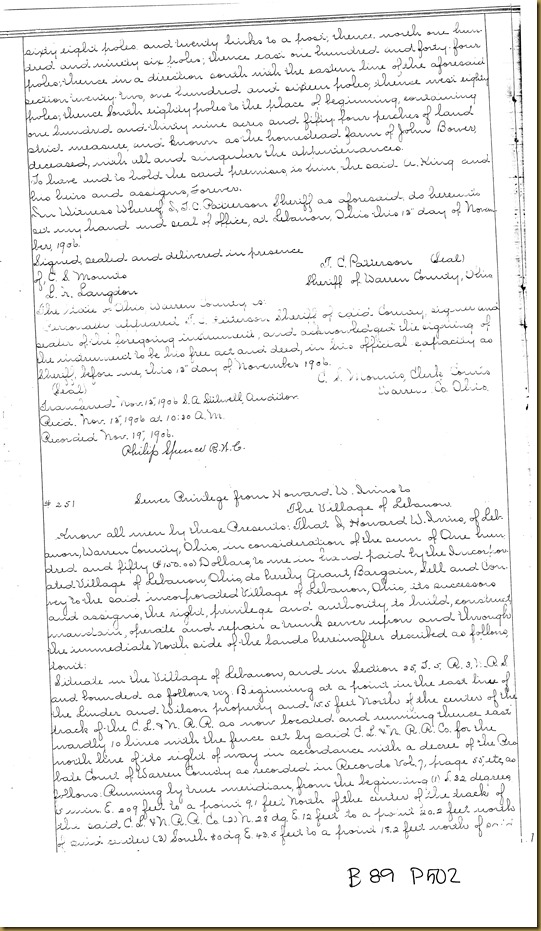 sixty eight poles and twenty links to a post; thence north one hun-
dred and ninety six poles; thence east one hundred and forty four
poles; thence in a direction south with the eastern line of the aforesaid
section twenty two, one hundred and sixteen poles; thence west eighty
poles; thence South eighty poles to the place of beginning, containing
one hundred and thirty nine acres and fifty four perches of land
strict measure, and known as the homestead farm of John Bower,
deceased, with all and singular the appurtenances.
To have and to hold the said premises to him, the said King and
his heirs and assigns, forever.
In Witness Whereof I, T. C. Patterson Sheriff as aforesaid, do hereunto
set my hand and seal of office, at Lebanon, Ohio this 13" day of Novem
ber, 1906.
Signed, sealed and delivered in presence
of C. S. Mounts
T. C. Patterson (Seal)
L. R. Langdon
Sheriff of Warren County, Ohio
The State of Ohio Warren County, ss:
Personally appeared T. C. Patterson Sheriff of said County, signer and
sealer of the foregoing instrument, and acknowledged the signing of
the instrument to be his free act and deed, in his official capacity as
Sheriff, before me, this 13" day of November 1906.
(Seal)
C. S. Mounts, Clerk Courts
Warren Co. Ohio.
Transferred Nov. 13, 1906 S. A. Stilwell Auditor
Recd. Nov. 13, 1906 at 10:30 A.M.
Recorded Nov. 19, 1906.
Philip Spence R.W.C.
# 251
Sewer Privilege from Howard W. Ivins to
The Village of Lebanon
Know all men by these Presents: That I, Howard W. Ivins, of Leb-
anon, Warren County, Ohio, in consideration of the sum of One hun-
dred and fifty ($150.00) Dollars, to me in hand paid by the Incorpor
ated Village of Lebanon, Ohio, do hereby Grant, Bargain, Sell and Con-
vey to the said incorporated Village of Lebanon, Ohio, its successors
and assigns, the right, privilege and authority, to build, construct
maintain, operate and repair a trunk sewer upon and through
the immediate North side of the lands hereinafter described as follows,
towit:
Situate in the Village of Lebanon, and in Section 35, T. 5, R. 3,
and bounded as follows, viz: Beginning at a point in the east line of
the Linder and Wilson property and 15.5 feet North of the center of the
track of the C. L. & N. R. R. as now located and running thence east
wardly 10 lines with the fence set by said C. L. & N. R. R. Co. for the
north line of its right of way in accordance with a decree of the Pro
bate Court of Warren County as recorded in Records Vol. 7, page 55, etc, as
follows. Running by true meridian, from the beginning (1) S. 82 degrees
min. E. 209 feet to a point 9.1 feet North of the center of the track of
the said C. L. & N. R. R. Co. (2) N. 28 dg. E. 12 feet to a point 20.2 feet north
of said center (3) South 80 dg E. 43.5 feet to a point 18.2 feet north of
B 89 P502